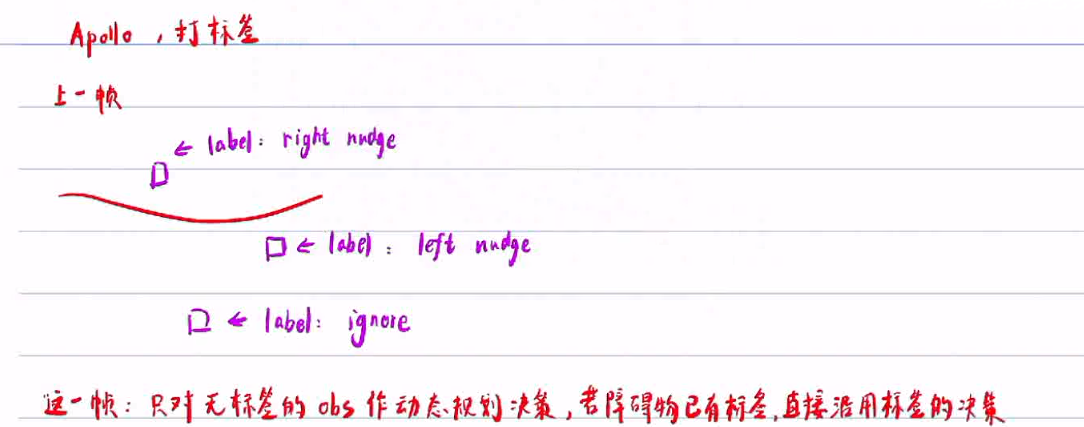 Apollo，打标签
上一帧
← label：right nudge
← label：left nudge
← label：ignore
这一帧：只对无标签的obs作动态规划决策，若障碍物已有标签，直接沿用标签的决策